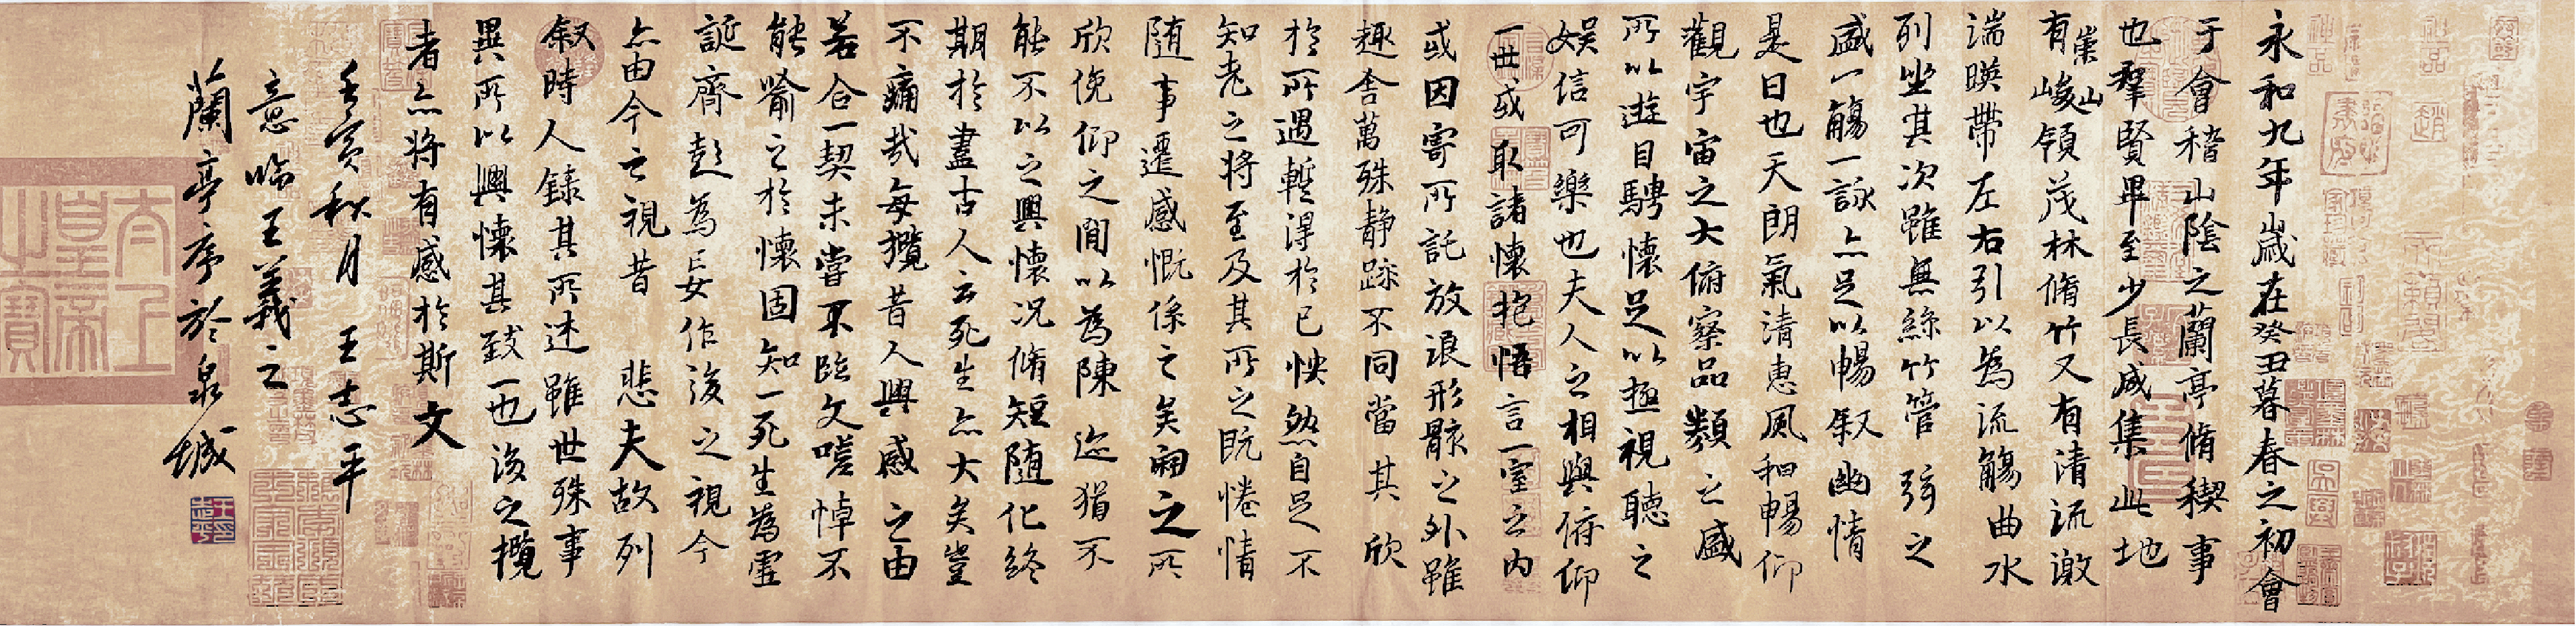 永和九年歲在癸丑暮春之初會
于會稽山陰之蘭亭脩稧事
也羣賢畢至少長咸集此地
有崇山峻領茂林脩竹又有清流激
湍暎帶左右引以為流觴曲水
列坐其次雖無絲竹管弦之
盛一觴一詠亦足以暢叙幽情
是日也天朗氣清惠風和暢仰
觀宇宙之大俯察品類之盛
所以遊目騁懷足以極視聽之
娛信可樂也夫人之相與俯仰
一世或取諸懷抱悟言一室之內
或因寄所託放浪形骸之外雖
趣舍萬殊静躁不同當其欣
於所遇暫得於己怏然自足不
知老之將至及其所之既惓情
隨事遷感慨係之矣向之所
欣俛仰之間以為陳迹猶不
能不以之興懷況脩短隨化終
期於盡古人云死生亦大矣豈
不痛哉每攬昔人興感之由
若合一契未嘗不臨文嗟悼不
能喻之於懷固知一死生為虛
誕齊彭為妄作後之視今
亦由今之視昔 悲夫故列
叙時人錄其所述雖世殊事
異所以興懷其致一也後之攬
者亦將有感於斯文
壬寅秋月 王志平
意臨王羲之
蘭亭序於泉城
太上皇帝之寶